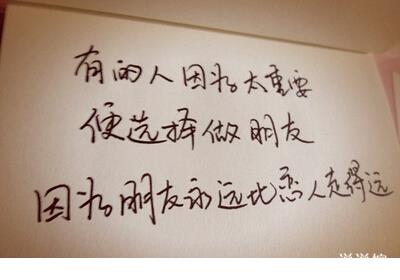 有的人因为太重要
便选择做朋友
因为朋友永远比恋人走得远